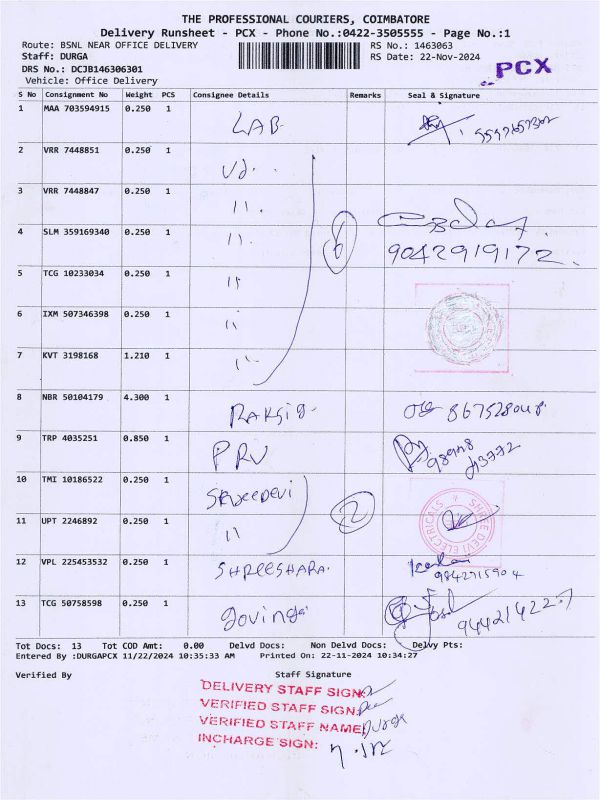 THE PROFESSIONAL COURIERS, COIMBATORE
Delivery Runsheet - PCX - Phone No.:0422-3505555 - Page No.:1
Route: BSNL NEAR OFFICE DELIVERY
RS No.: 1463063
Staff: DURGA
RS Date: 22-Nov-2024
DRS No.: DCJB146306301
PCX
Vehicle: Office Delivery
S No Consignment No Weight PCS Consignee Details Remarks Seal & Signature
1 MAA 703594915 0.250 1 LAB
2 VRR 7448851 0.250 1
3 VRR 7448847 0.250 1 11
4 SLM 359169340 0.250 1 11 6 9042919172
5 TCG 10233034 0.250 1 11
6 IXM 507346398 0.250 1 11
7 KVT 3198168 1.210 1 11
8 NBR 50104179 4.300 1
9 TRP 4035251 0.850 1 PRV
10 TMI 10186522 0.250 1 SREEDEVI 2 SHREE DEVI ELECTRICALS
11 UPT 2246892 0.250 1 11
12 VPL 225453532 0.250 1 SHREESHARA 9842715904
13 TCG 50758598 0.250 1 govinda
Tot Docs: 13 Tot COD Amt: 0.00 Delvd Docs: Non Delvd Docs: Delvy Pts:
Entered By :DURGAPCX 11/22/2024 10:35:33 AM Printed On: 22-11-2024 10:34:27
Verified By Staff Signature
DELIVERY STAFF SIGN:
VERIFIED STAFF SIGN:
VERIFIED STAFF NAME: DURGA
INCHARGE SIGN: